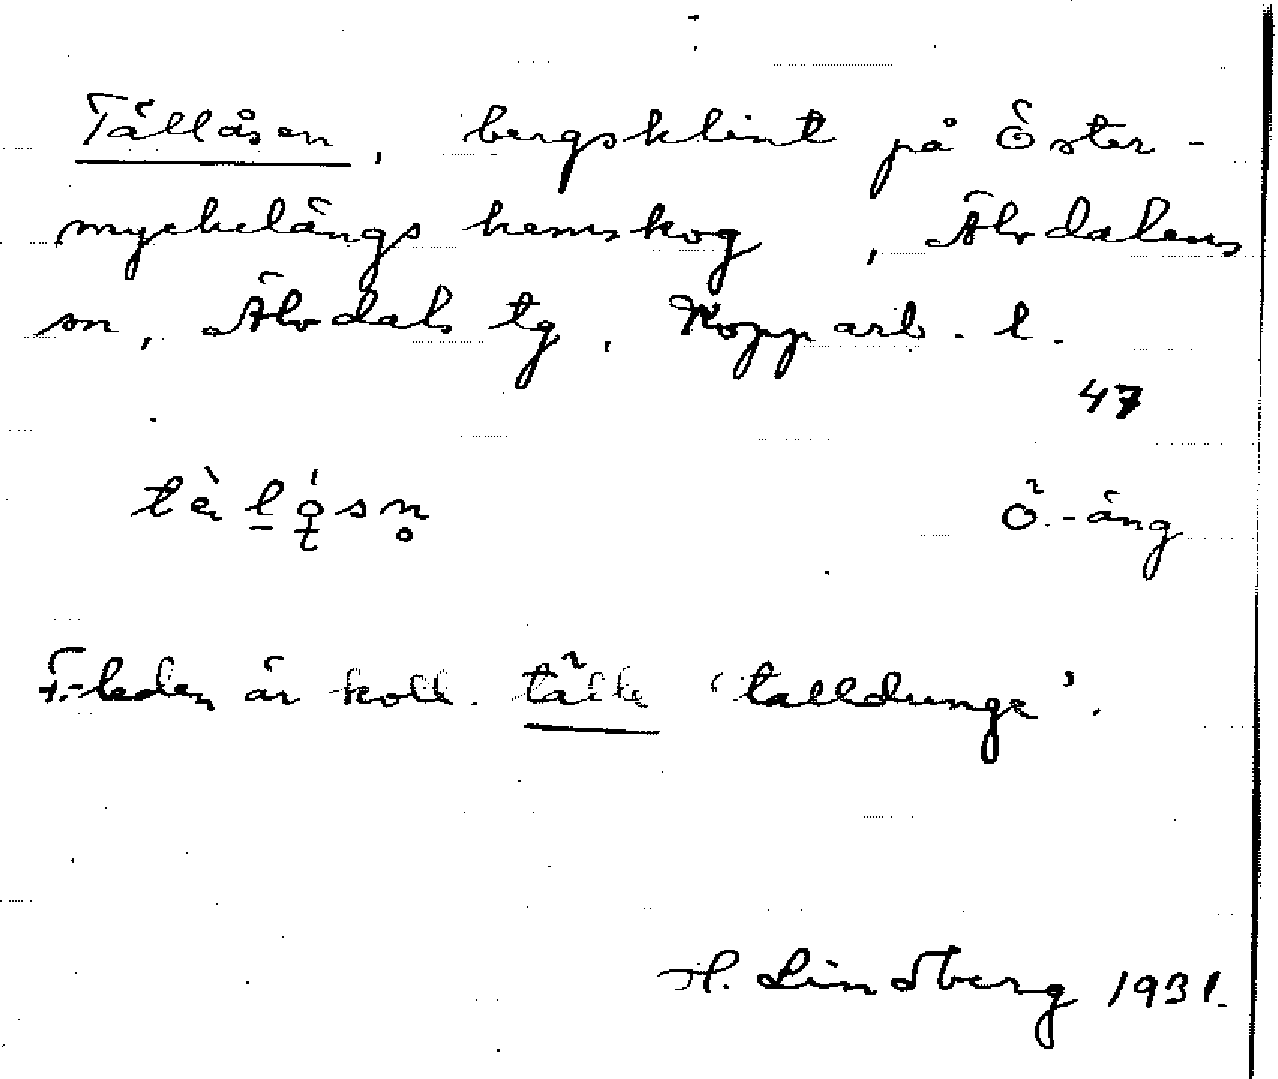 Tällåsen, bergsklint på Öster-
myckelängs hemskog, Älvdalens
sn, Älvdals tg, Kopparb. l.
47
tὰl̠ǫ́sn̥ Ö.-äng
F.-leden är koll. tälle 'talldunge'.
H. Lindberg 1931.